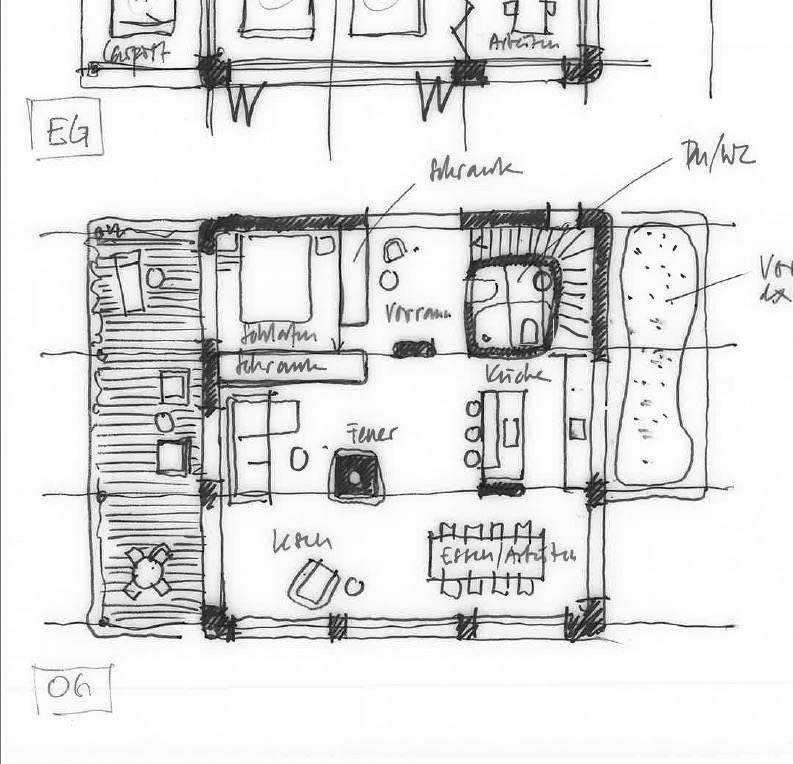 Carport
Arbeiten
EG
Schrank
DU/WC
Vorraum
Schlafen
Schrank
Küche
Feuer
Lesen
Essen/Arbeiten
OG